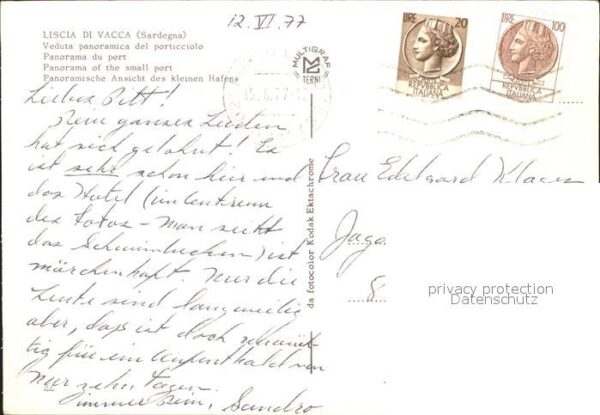 12.VI.77
LISCIA DI VACCA (Sardegna)
Veduta panoramica del porticciolo
Panorama du port
Panorama of the small port
Panoramische Ansicht des kleinen Hafens
MULTIGRAF
TERNI
LIRE 20
REPVBBLICA
ITALIANA
LIRE 100
REPVBBLICA
ITALIANA
15.6.77
da fotocolor Kodak Ektachrome
Liebes
Dein ganzes Leiden
hat sich gelohnt! Es
ist sehr schön hier und
das Hotel (im Zentrum
des Fotos - Man sieht
das Schwimmbecken) ist
märchenhaft. Nur die
Leute sind langweilig
aber, das ist doch
tig für ein Aufenthalt von
nur zehn Tagen.
Immer Dein, Sandro
Frau Edelgard
8
privacy protection
Datenschutz